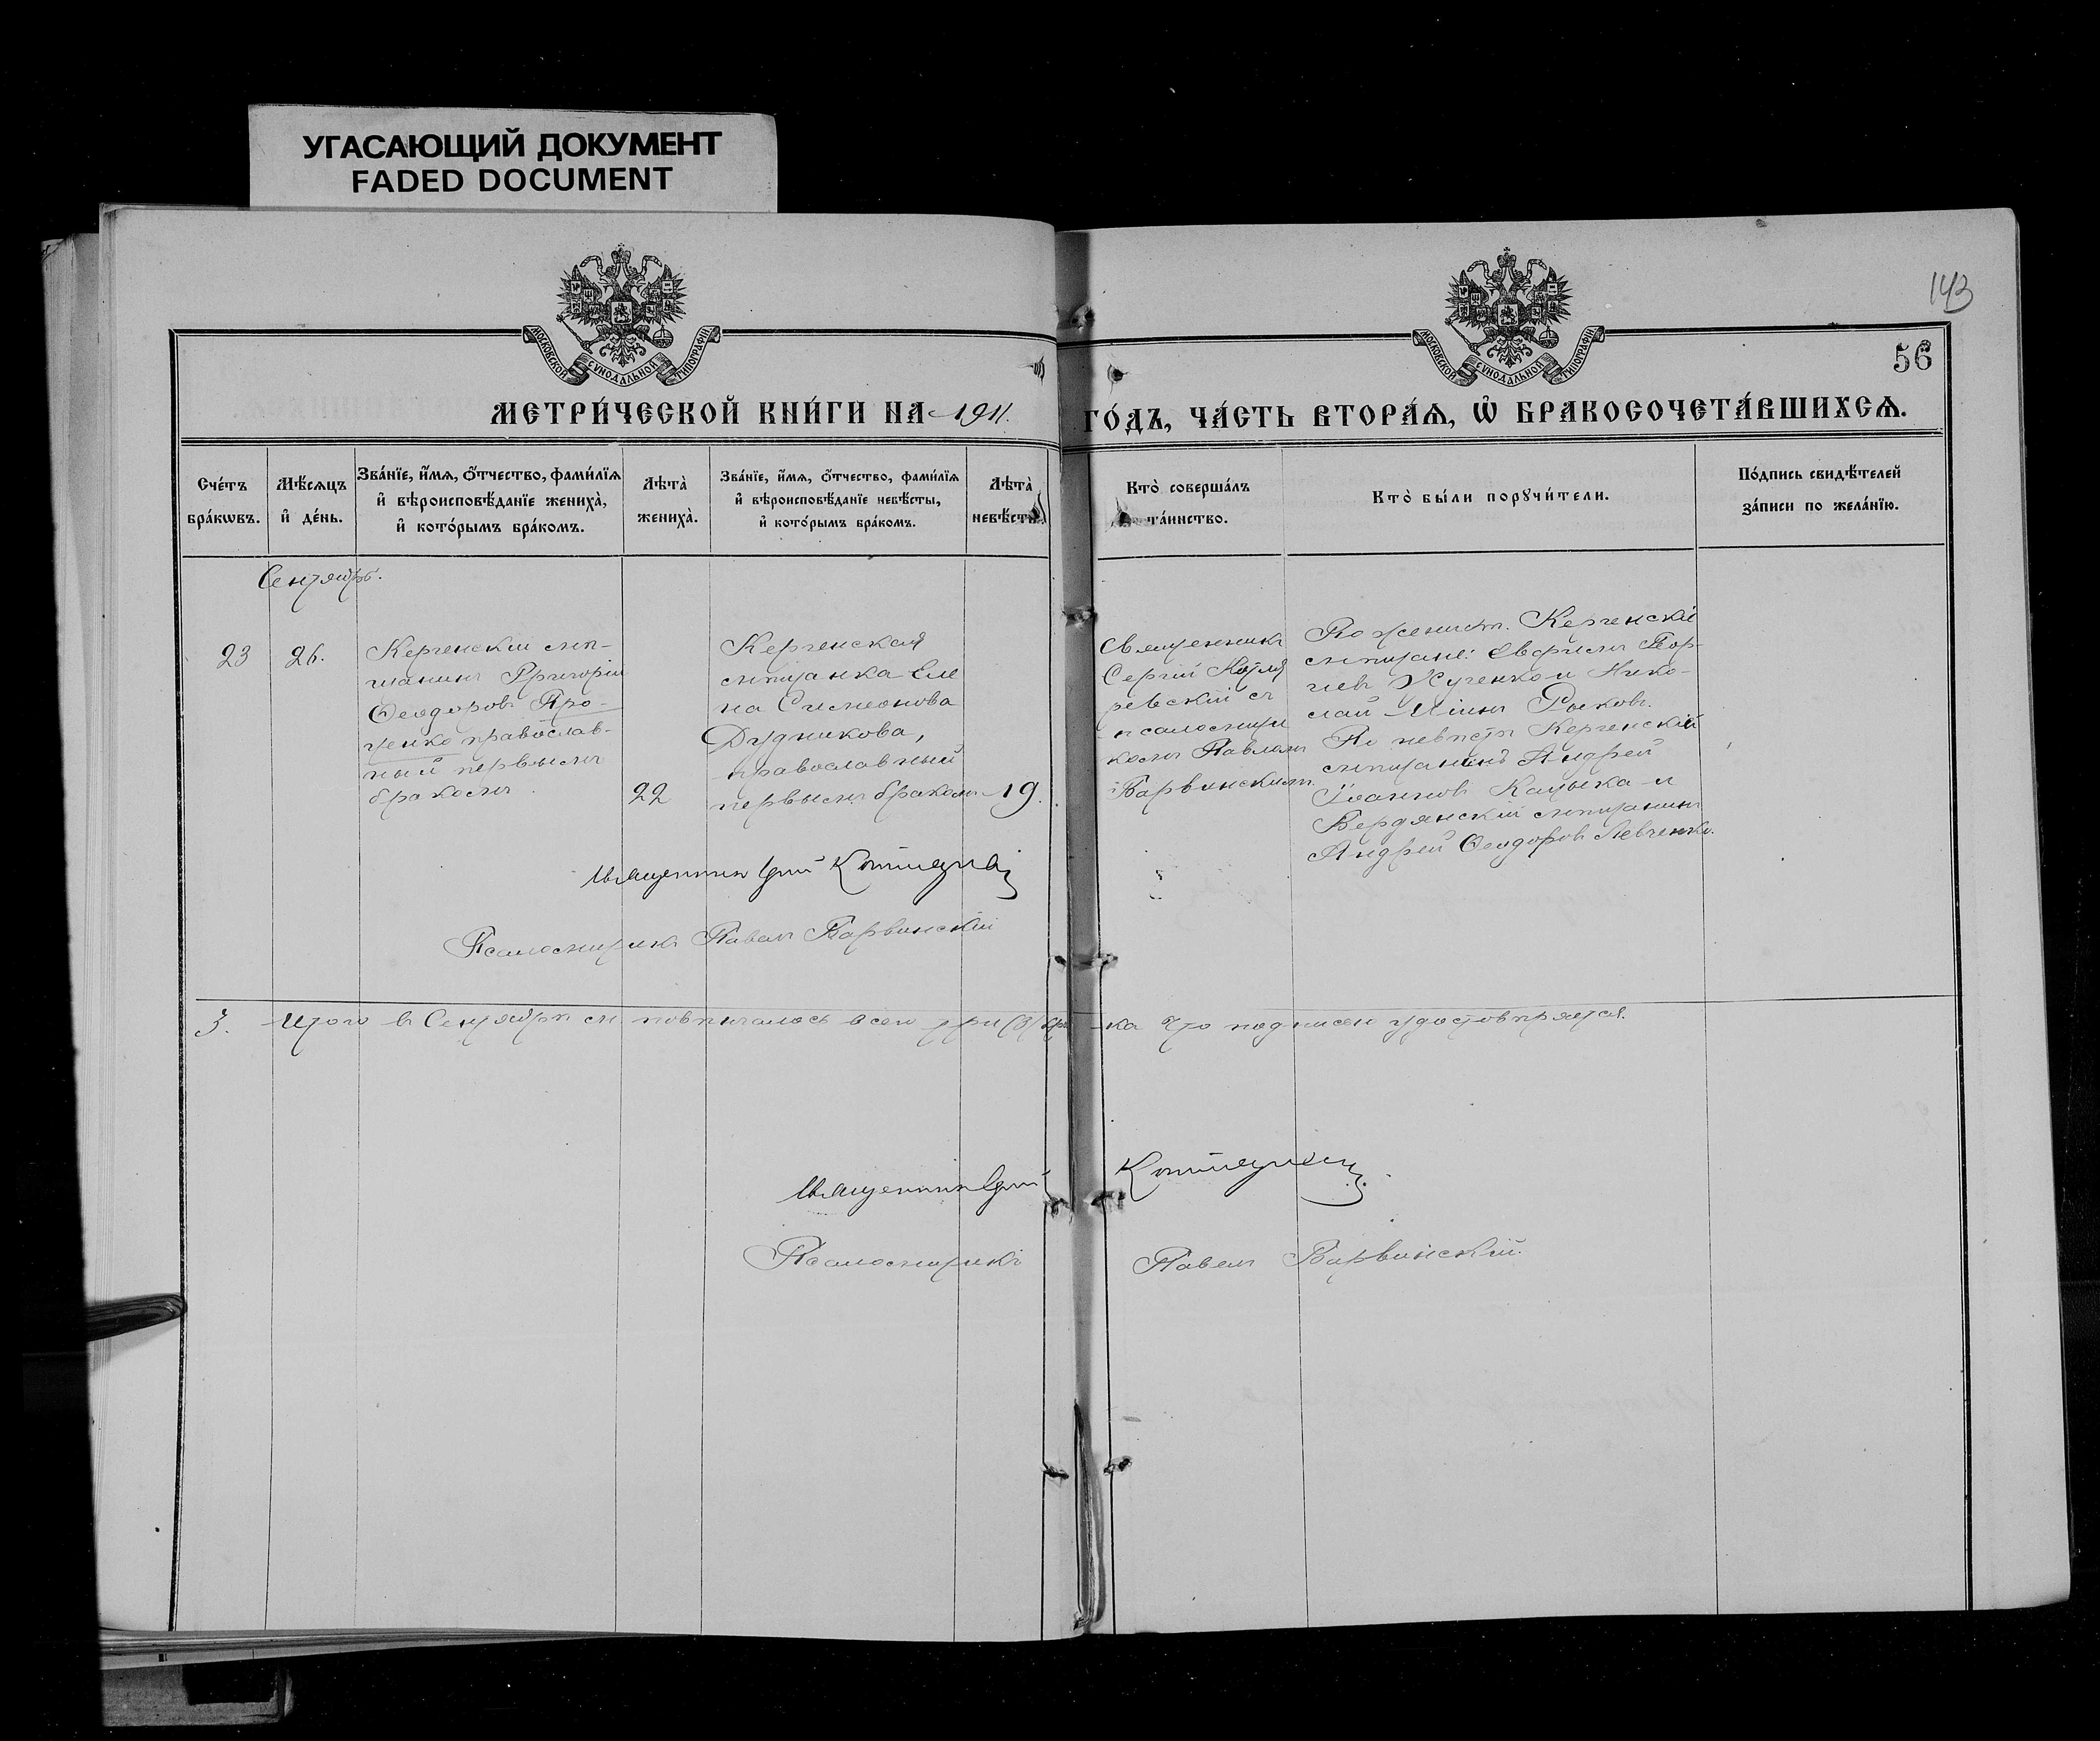 УГАСАЮЩИЙ ДОКУМЕНТ
FADED DOCUMENT
143
56
МОСКОВСКОЙ СѴНОДАЛЬНОЙ ТИПОГРАФІИ
МОСКОВСКОЙ СѴНОДАЛЬНОЙ ТИПОГРАФІИ
МЕТРИ́ЧЕСКОЙ КНИ́ГИ НА 1911. ГО́ДЪ, ЧА́СТЬ ВТОРА́Ѧ, Ѡ҆ БРАКОСОЧЕТА́ВШИХСѦ.
Сче́тъ
бра́кѡвъ.
Мѣ́сѧцъ
и҆ де́нь.
Зва́нїе, и҆́мѧ, ѻ҆́тчество, фами́лїѧ
и҆ вѣроисповѣ́данїе женихà,
и҆ кото́рымъ бра́комъ.
Лѣтà
женихà.
Зва́нїе, и҆́мѧ, ѻ҆́тчество, фами́лїѧ
и҆ вѣроисповѣ́данїе невѣ́сты,
и҆ кото́рымъ бра́комъ.
Лѣтà
невѣ́сты.
Ктò соверша́лъ
та́инство.
Ктò бы́ли порꙋчи́тели.
По́дпись свидѣ́телей
за́писи по жела́нїю.
Сентябрь.
23
26.
Керченскій мѣ-
щанинъ Григорій
Ѳеодоровъ Про-
ценко православ-
ный первымъ
бракомъ.
22
Керченская
мѣщанка Еле
на Симеонова
Дудникова,
православный
первымъ бракомъ
19.
Священникъ
Сергій Котля
ревскій съ
псаломщи
комъ Павломъ
Варвинскимъ.
По женихѣ. Керченскіе
мѣщане: Евфимъ Геор-
гіевъ Жученко и Нико-
лай Рыковъ.
По невѣстѣ Керченскій
мѣщанинъ Андрей
Іоанновъ и
Бердянскій мѣщанинъ
Андрей Ѳеодоровъ Левченко.
Священникъ Сергій Котляревскій
Псаломщикъ Павелъ Варвинскій
3. Итого въ Сентябрѣ м. повѣнчалось всего три (3) бра-ка что подписью удостовѣряется.
Священникъ Сергій Котляревскій
Псаломщикъ Павелъ Варвинскій.